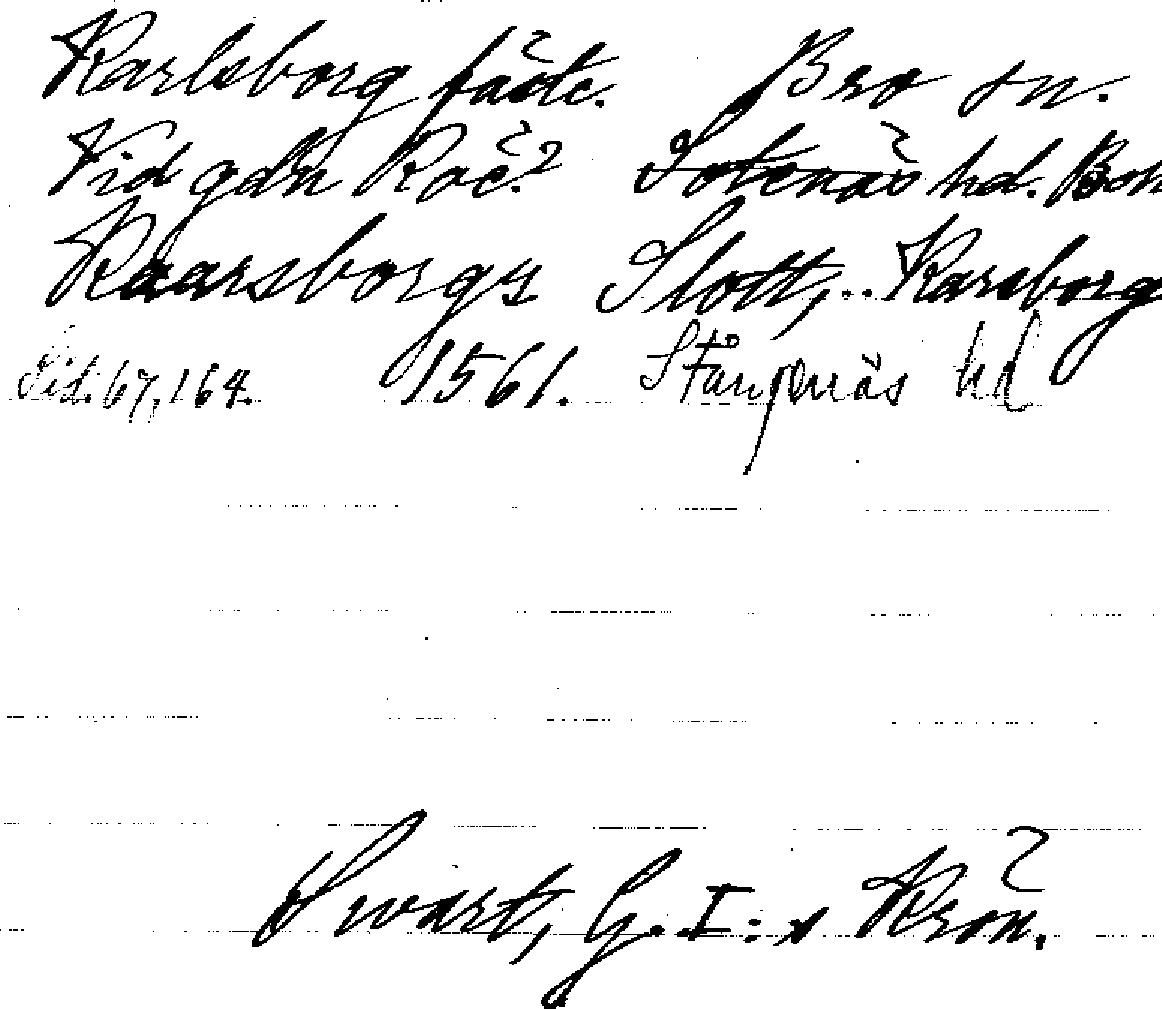 Karlsborg fäste. Bro sn.
Vid gdn Roe? Sotenäs hd. Boh
Kaarsborgs Slott, .. Karsborg
Sid. 67, 164. 1561. Stångenäs hd
Swart, G. I:s Krön.